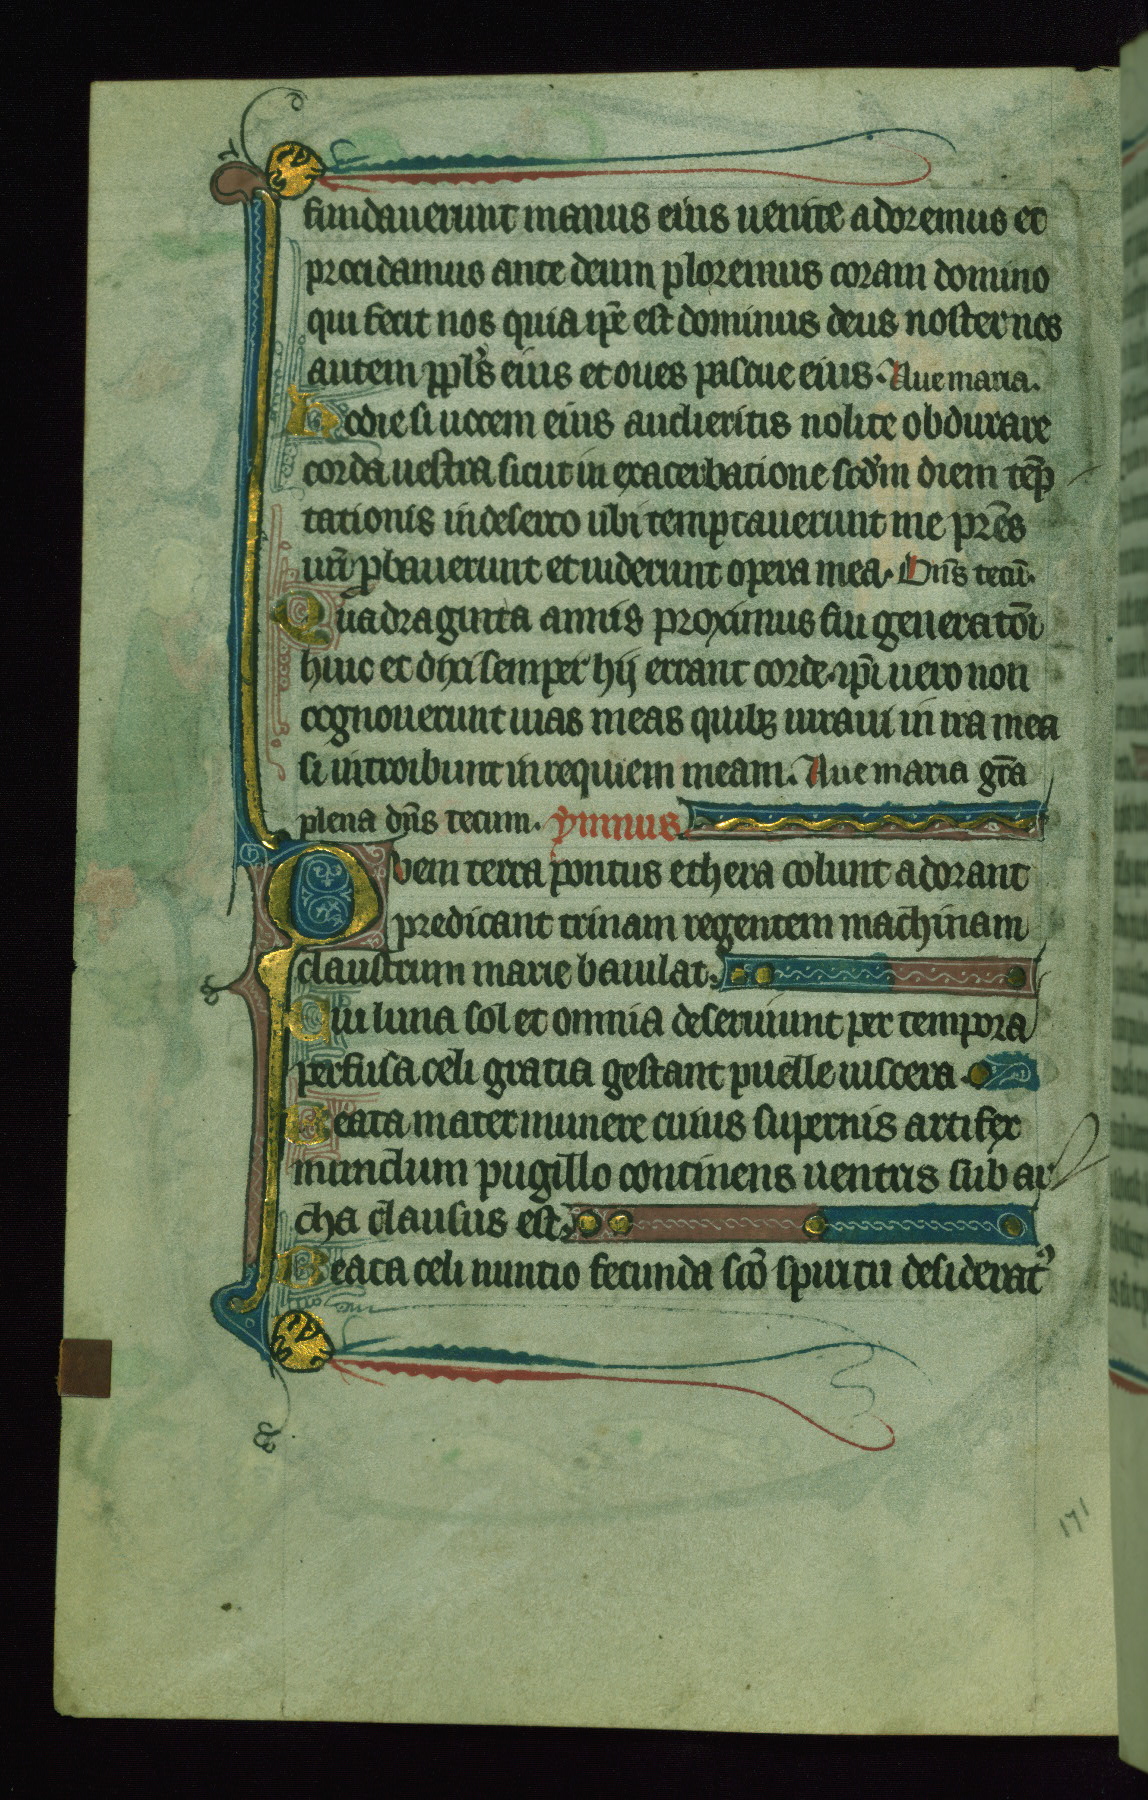 fundauerunt manus eius uenite adoremus et
procidamus ante deum ploremus coram domino
qui fecit nos quia ip̄e est dominus deus noster nos
autem ppl̄s eius et oues pascue eius. Aue maria.
Hodie si uocem eius audieritis nolite obdurare
corda uestra sicut in exacerbatione scd̄m diem tēp
tationis in deserto ubi temptauerunt me pr̄es
ur̄i ꝓbauerunt et uiderunt opera mea. Dn̄s tecū.
Quadraginta annis proximus fui generatōi
huic et dixi semper hij errant corde. ip̄i uero non
cognouerunt uias meas quibꝫ iuraui in ira mea
si introibunt in requiem meam. Aue maria gr̄a
plena dn̄s tecum. ymnus
Quem terra pontus ethera colunt adorant
predicant trinam regentem machinam
claustrum marie baiulat.
Cui luna sol et omnia deseruiunt per tempora
perfusa celi gratia gestant puelle uiscera
Beata mater munere cuius supernis artifex
mundum pugillo continens uentris sub ar
cha clausus est.
Beata celi nuntio fecunda sc̄o spiritu desiderat᷒
171